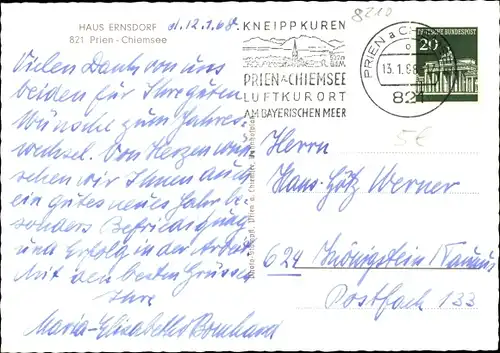 HAUS ERNSDORF
821 Prien - Chiemsee
d. 12.1.68
Vielen Dank von uns
beiden für Ihre guten
Wünsche zum Jahres-
wechsel. Von Herzen wün-
schen wir Ihnen auch
ein gutes neues Jahr be-
sonders Befriedigung
und Erfolg in der Arbeit
Mit den besten Grüssen
Ihre
Maria-Elisabeth Bomhard
KNEIPPKUREN
PRIEN A CHIEMSEE
LUFTKURORT
AM BAYERISCHEN MEER
8210
PRIEN a C
13.1.68
821
DEUTSCHE BUNDESPOST
20
5€
Herrn
Hans-Götz Werner
624 Königstein/Taunus
Postfach 133